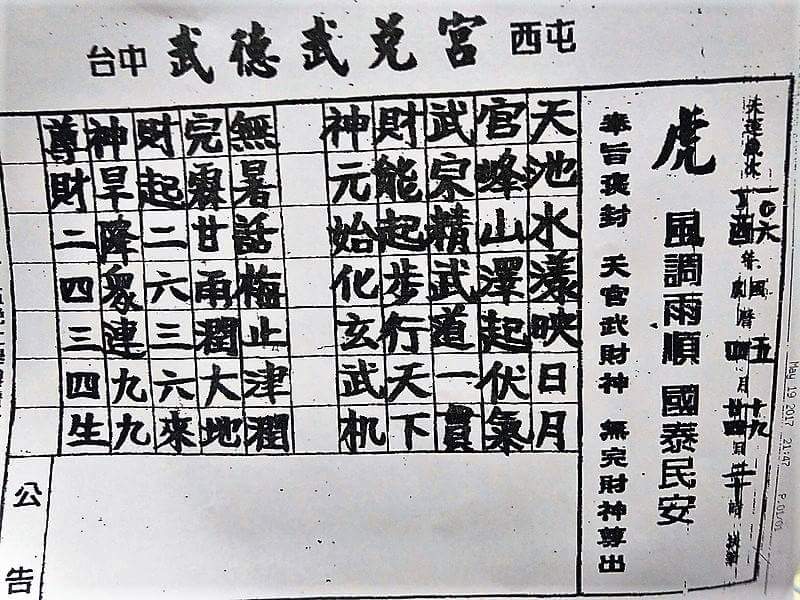 台中 武德武兌宮 西屯
May 19 2017 21:47 P.01/01
一〇六 丁酉年
國曆 五月 十九日
四月 廿四日 時
虎 風調雨順 國泰民安
奉旨褒封 天官武財神 無完財神尊出
天池水漾映日月
官峰山澤起伏氣
武宗精武道一貫
財能起步行天下
神元始化玄武机
無暑話梅止津潤
完霖甘雨潤大地
財起二六三六來
神旱降眾連九九
尊財二四三四生
公告